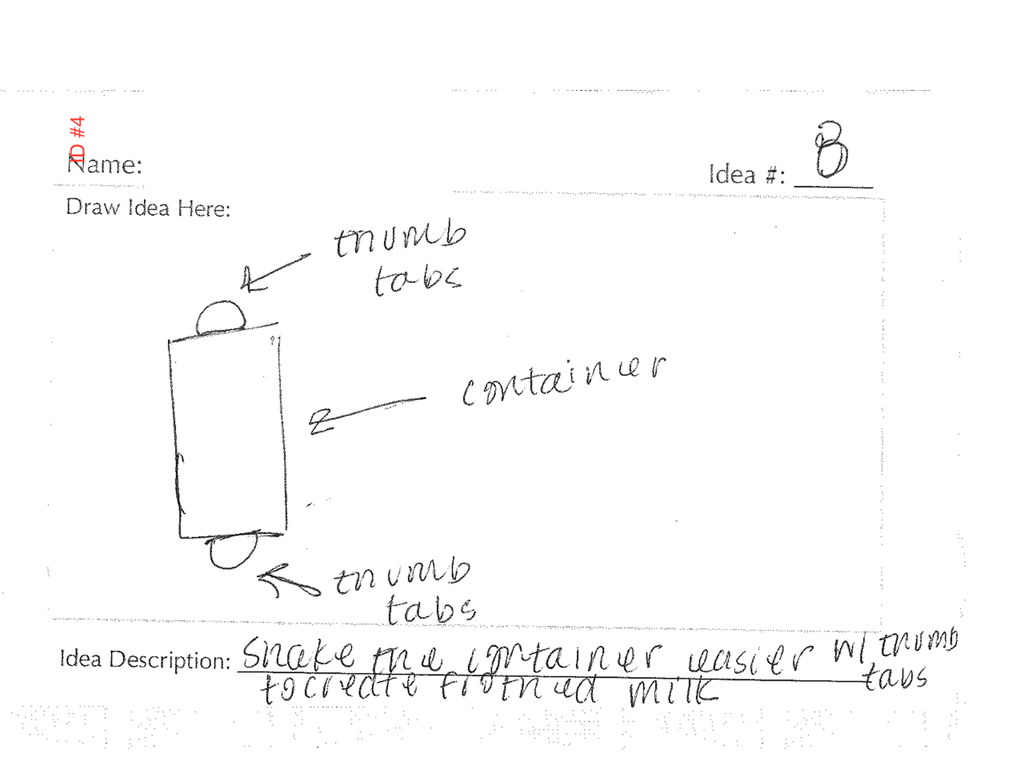 ID #4
Name:
Idea #: B
Draw Idea Here:
thumb
tabs
container
thumb
tabs
Idea Description: Shake the container easier w/ thumb
tabs
to create frothed milk